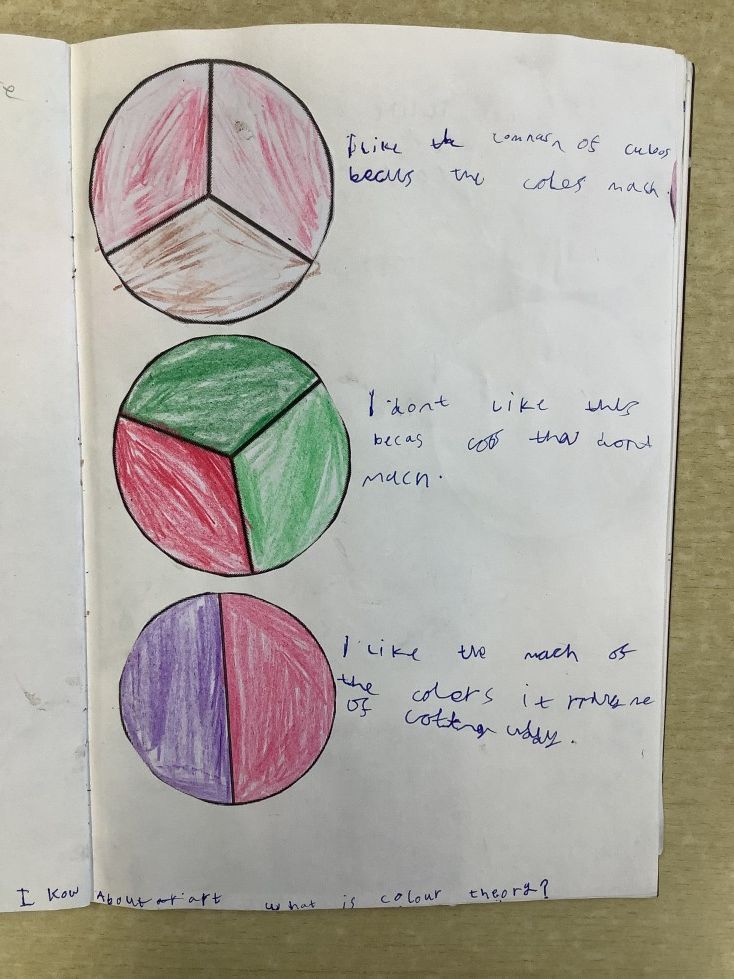 I like the comnasn of culos
becaus the coles mach.
I dont like this
becas the dont
mach.
I like the mach of
the colers it me
of
I Kow About art what is colour theory?